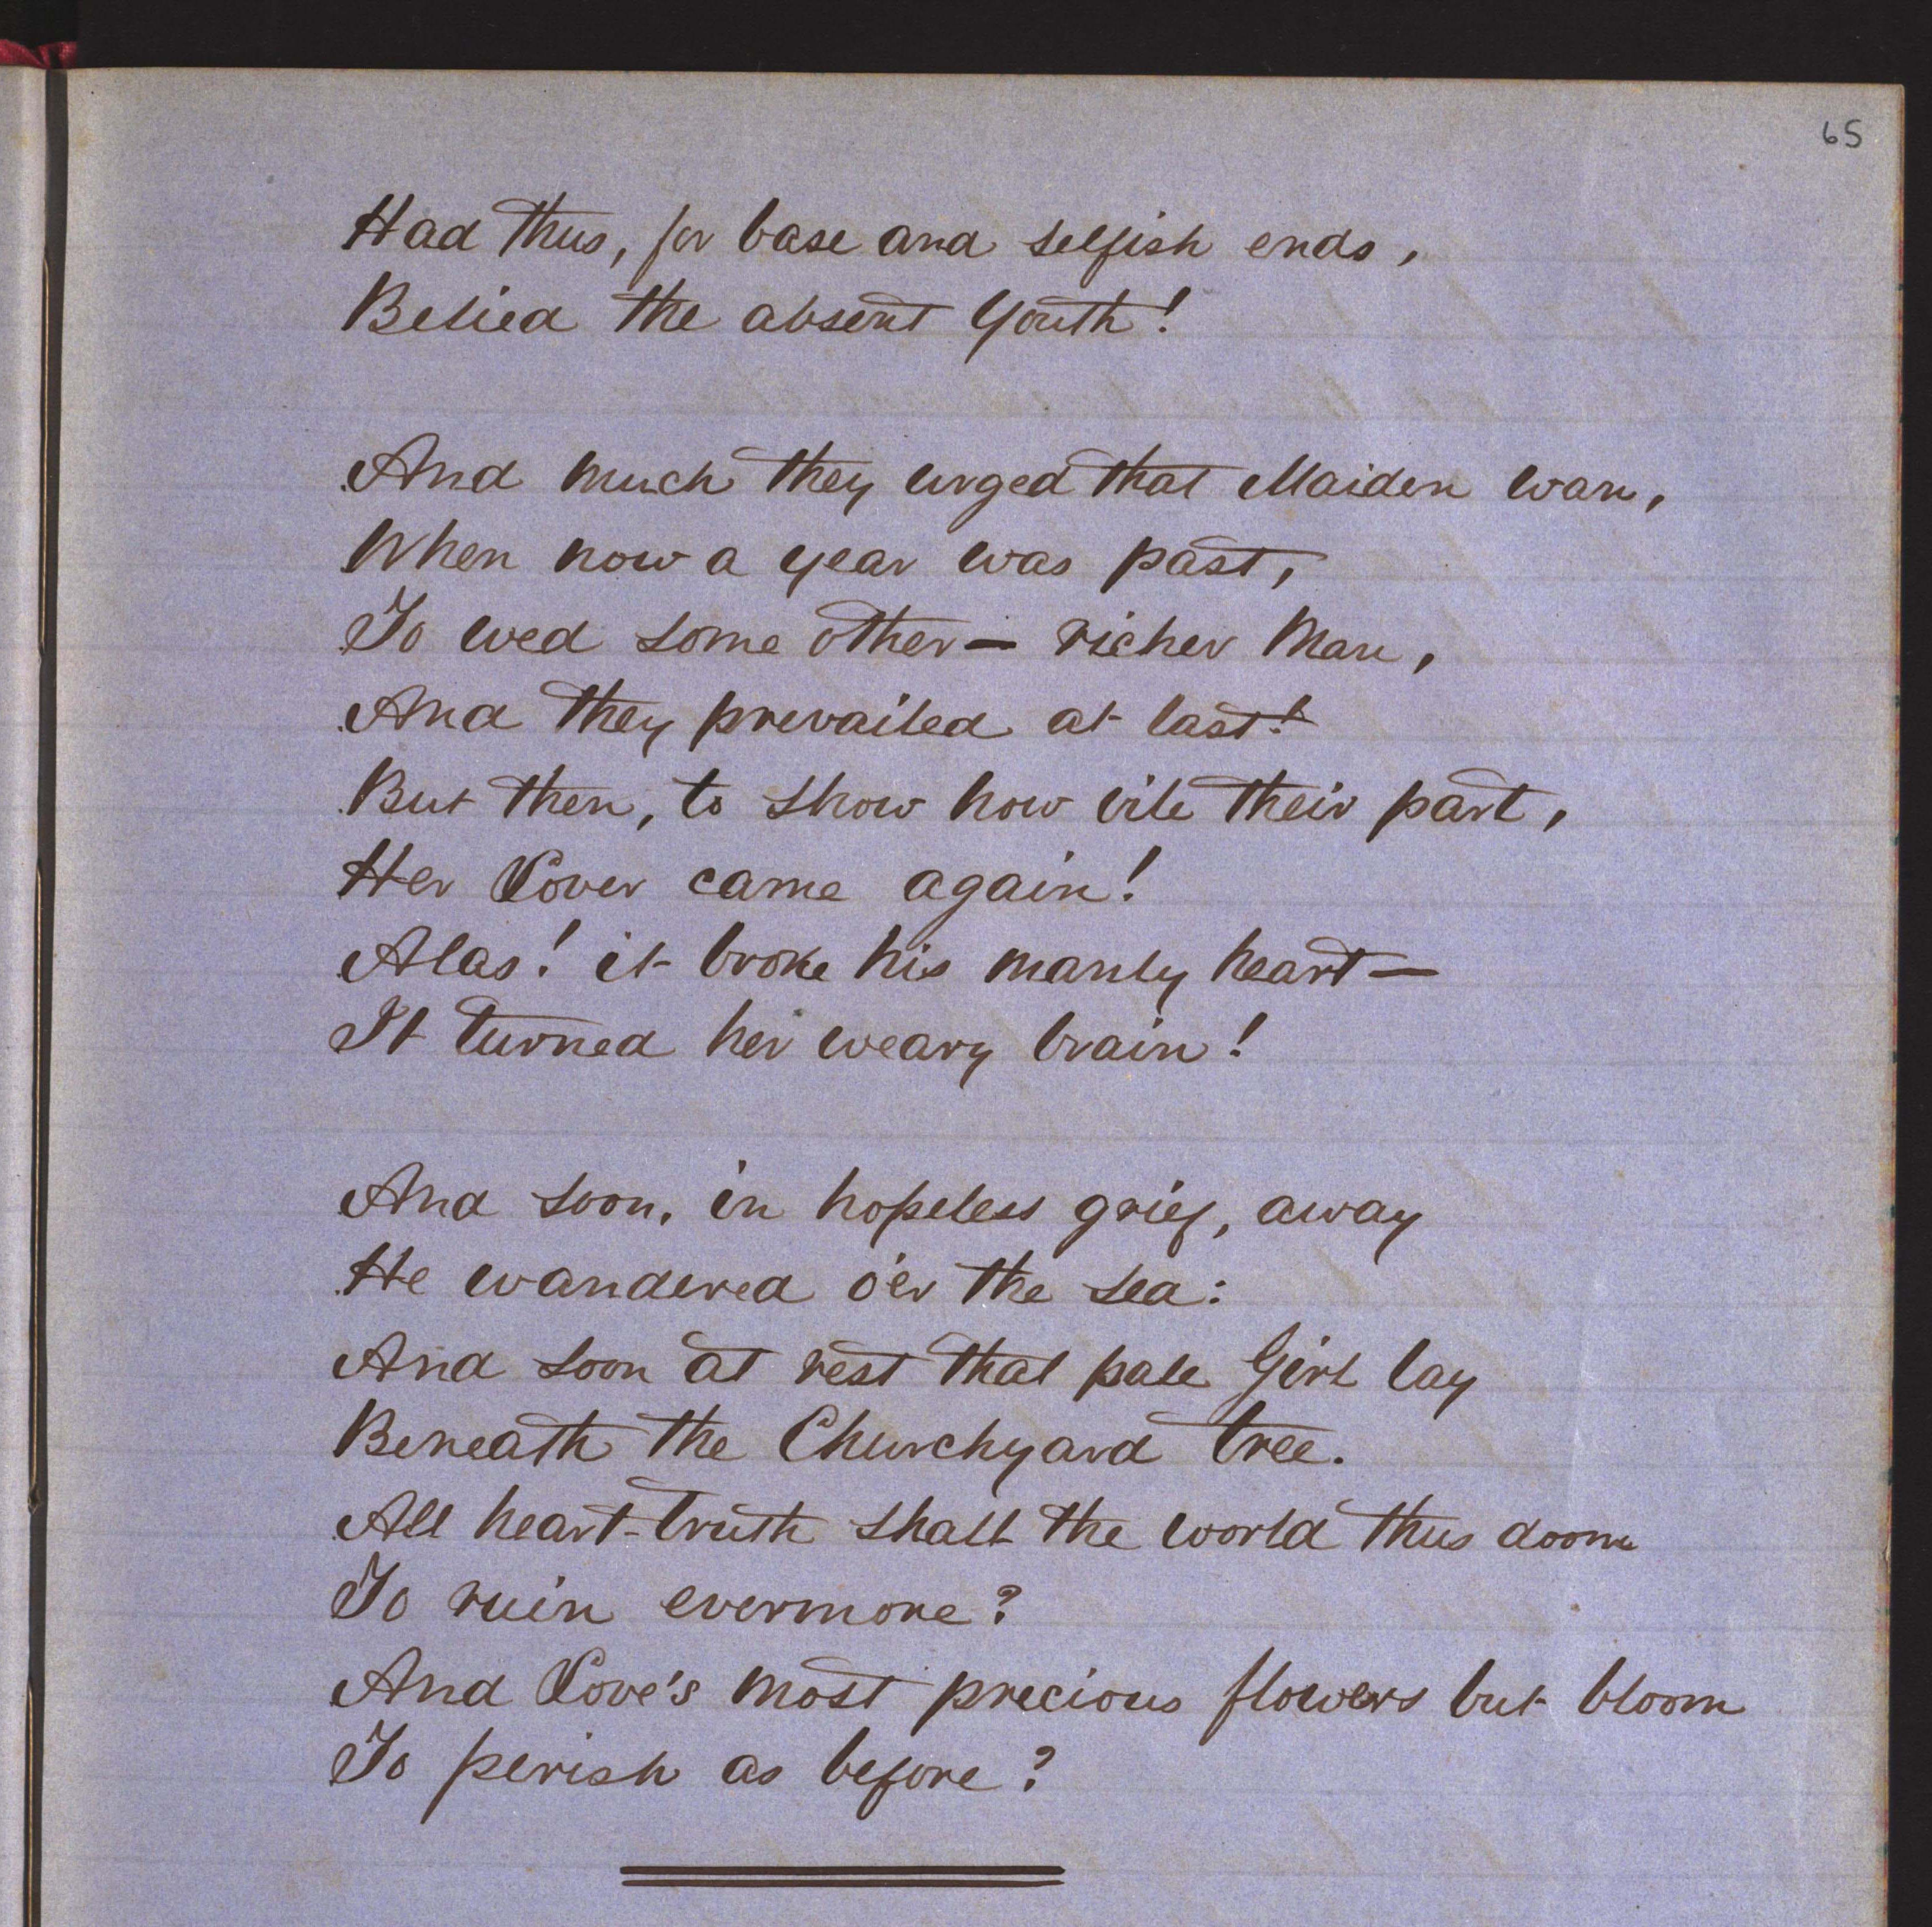 65
Had thus, for base and selfish ends,
Belied the absent Youth!
And much they urged that Maiden wan,
When now a year was past,
To wed some other — richer Man,
And they prevailed at last!
But then, to show how vile their part,
Her Lover came again!
Alas! it broke his manly heart —
It turned her weary brain!
And soon, in hopeless grief, away
He wandered o'er the sea:
And soon at rest that pale Girl lay
Beneath the Churchyard tree.
All heart-truth shall the world thus doom
To ruin evermore?
And Love's most precious flowers but bloom
To perish as before?